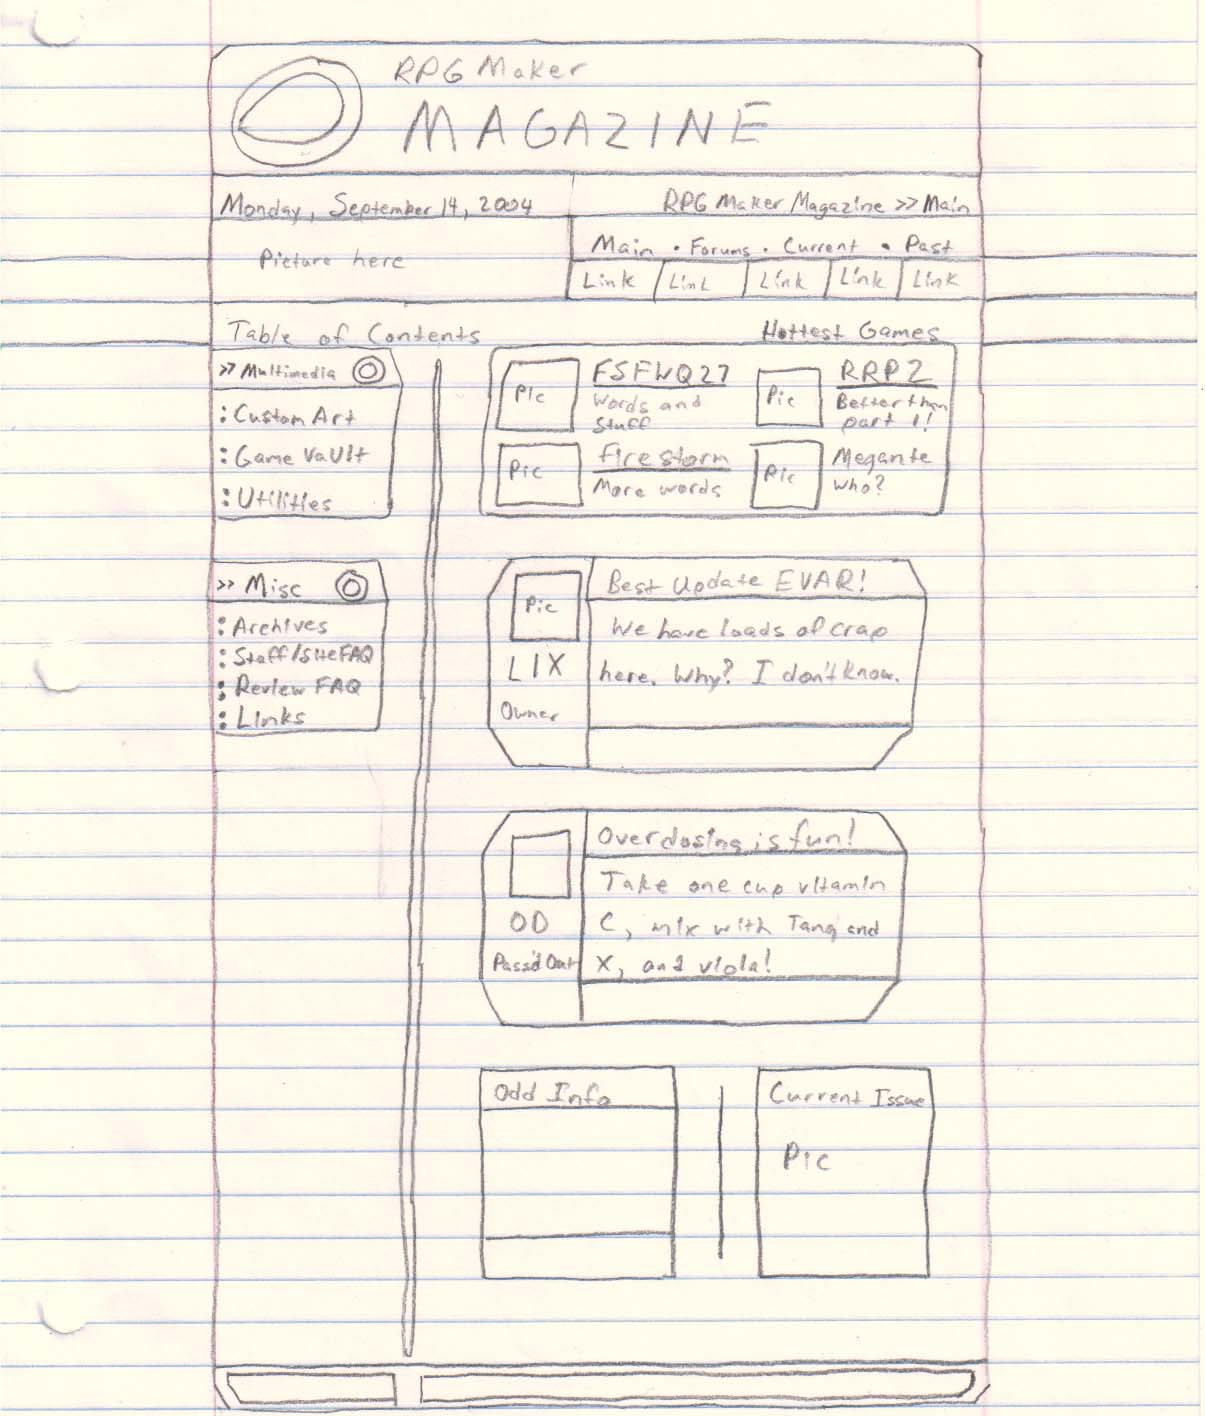 RPG Maker
MAGAZINE
Monday, September 14, 2004
RPG Maker Magazine >> Main
Picture here
Main • Forums • Current • Past
Link Link Link Link Link
Table of Contents
>> Multimedia
: Custom Art
: Game Vault
: Utilities
>> Misc
: Archives
: Staff/Site FAQ
: Review FAQ
: Links
Hottest Games
Pic
FSFWQ27
Words and
Stuff
Pic
RRP2
Better than
part 1!
Pic
Firestorm
More words
Pic
Megante
who?
Pic
LIX
Owner
Best Update EVAR!
We have loads of crap
here. Why? I don't know.
OD
Pass'd Out
Overdosing is fun!
Take one cup vitamin
C, mix with Tang and
X, and viola!
Odd Info
Current Issue
Pic